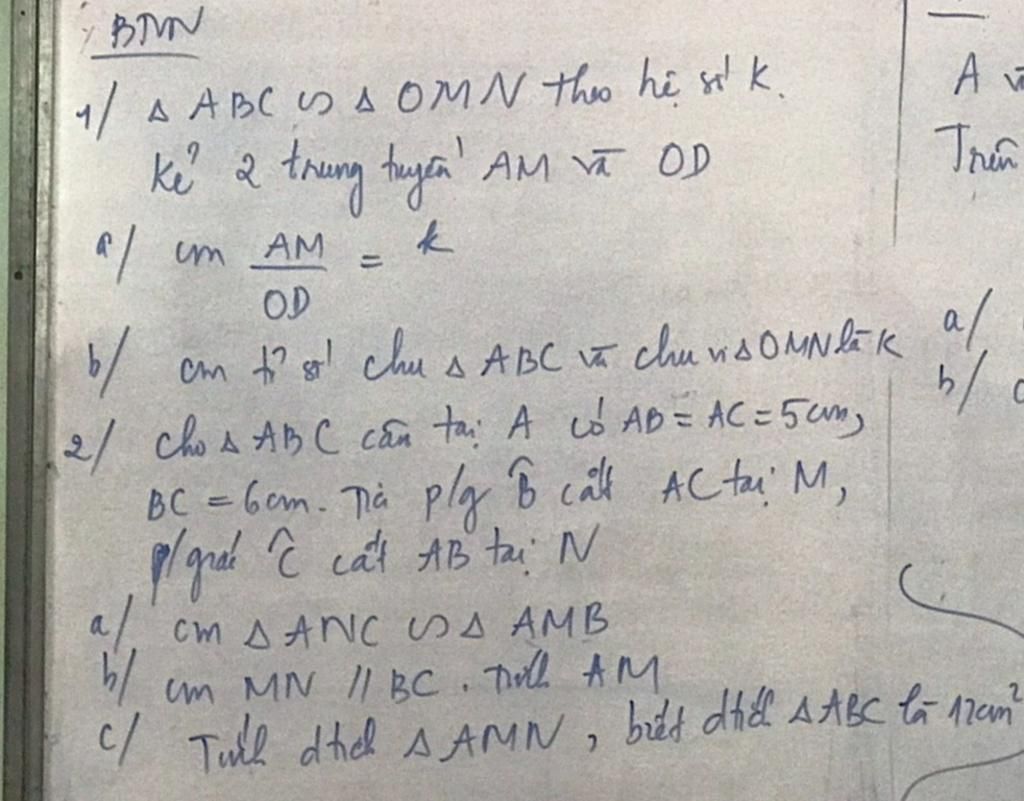 BTVN
1/ Δ ABC ∽ Δ OMN theo hệ số K.
Kẻ 2 trung tuyến AM và OD
a/ cm AM/OD = k
b/ cm tỉ số chu Δ ABC và chu vi Δ OMN là K
2/ Cho Δ ABC cân tại A có AB = AC = 5cm,
BC = 6cm. Tia p/g B̂ cắt AC tại M,
p/giác Ĉ cắt AB tại N
a/ cm Δ ANC ∽ Δ AMB
b/ cm MN // BC. Tính AM
c/ Tính dtích Δ AMN, biết dtích Δ ABC là 12cm²
A và
Trên
a/
b/